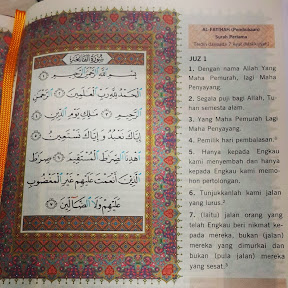 سورة الفاتحة
بسم الله الرحمن الرحيم ١
الحمد لله رب العالمين ٢ الرحمن
الرحيم ٣ مالك يوم الدين ٤
إياك نعبد وإياك نستعين ٥
اهدنا الصراط المستقيم ٦ صراط
الذين أنعمت عليهم غير المغضوب
عليهم ولا الضالين ٧
AL-FATIHAH (Pembukaan)
Surah Pertama
JUZ 1
1. Dengan nama Allah Yang
Maha Pemurah, lagi Maha
Penyayang.
2. Segala puji bagi Allah, Tu-
han semesta alam.
3. Yang Maha Pemurah Lagi
Maha Penyayang.
4. Pemilik hari pembalasan.
5. Hanya kepada Engkau
kami menyembah dan hanya
kepada Engkau kami memo-
hon pertolongan.
6. Tunjukkanlah kami jalan
yang lurus.
7. (Iaitu) jalan orang yang
telah Engkau beri nikmat ke-
pada mereka, bukan (jalan)
mereka yang dimurkai dan
bukan (pula jalan) mereka
yang sesat.